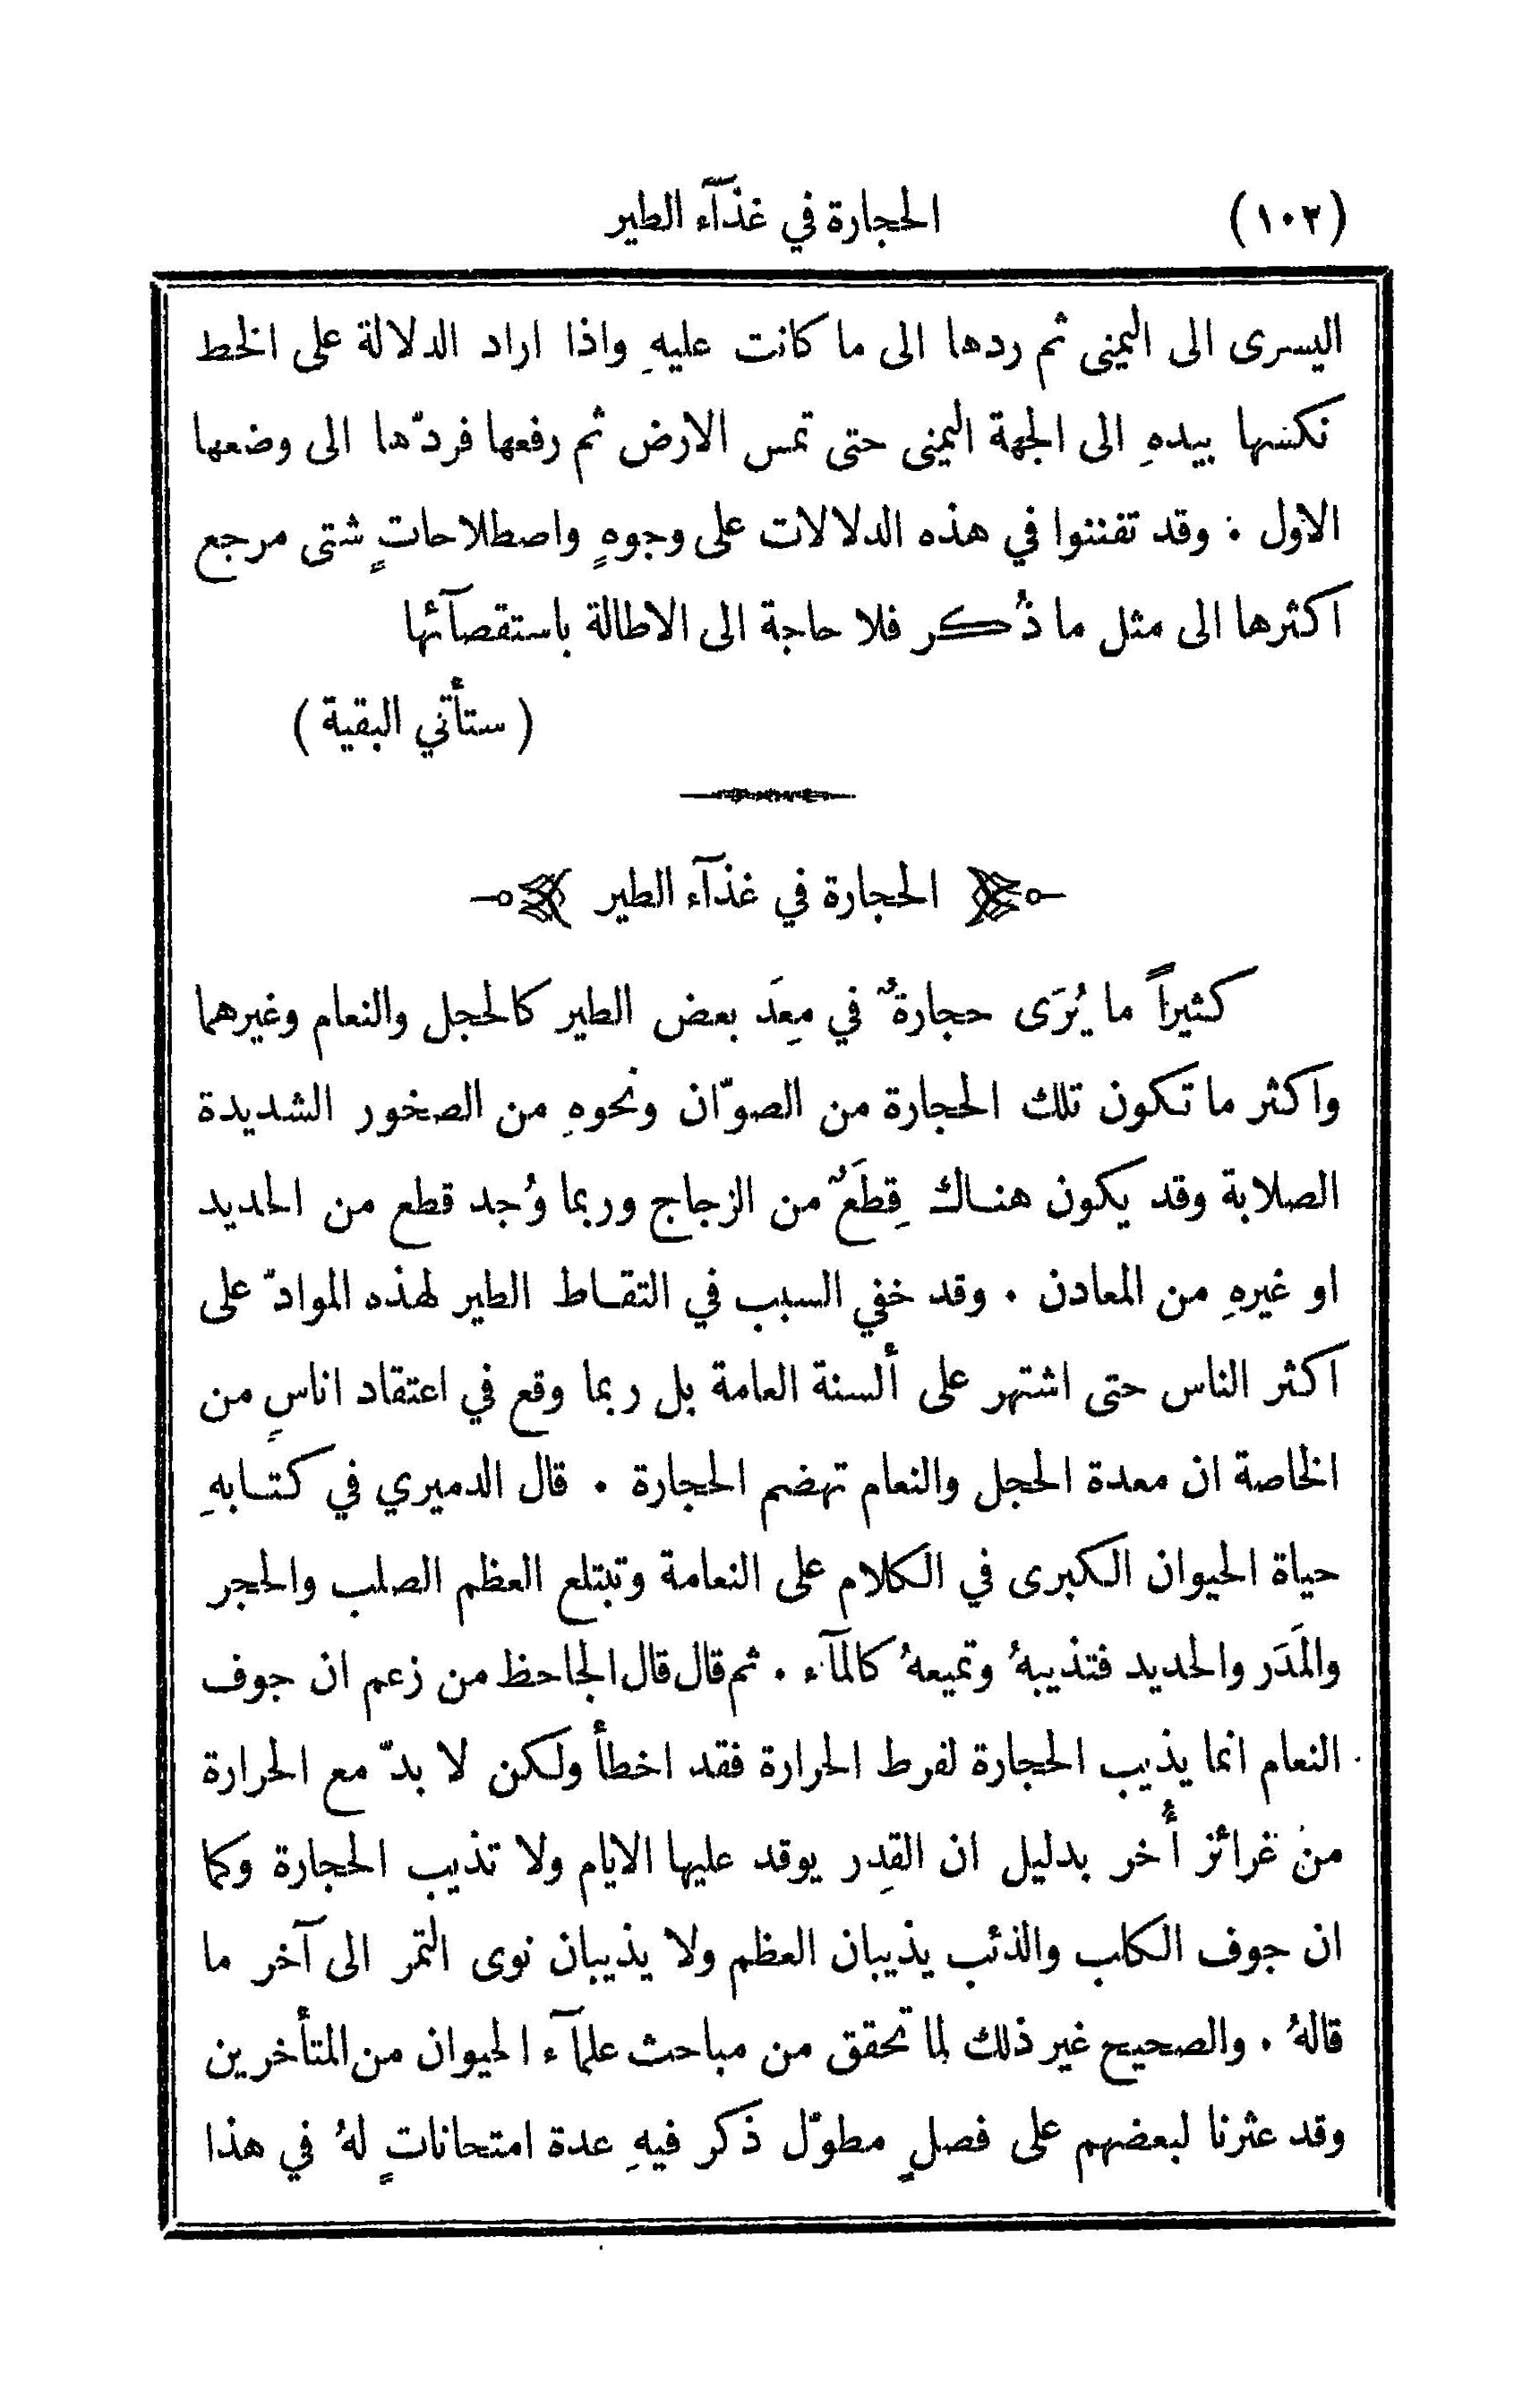 (١٠٢) الحجارة في غذآء الطير
اليسرى الى اليمنى ثم ردها الى ما كانت عليهِ واذا اراد الدلالة على الخط
نكسها بيدهِ الى الجهة اليمنى حتى تمس الارض ثم رفعها فردّها الى وضعها
الاول ٠ وقد تفننوا في هذه الدلالات على وجوهٍ واصطلاحاتٍ شتى مرجع
اكثرها الى مثل ما ذُكر فلا حاجة الى الاطالة باستقصآئها
( ستأتي البقية )
الحجارة في غذآء الطير
كثيراً ما يُرَى حجارةٌ في مِعِدَ بعض الطير كالحجل والنعام وغيرهما
واكثر ما تكون تلك الحجارة من الصوّان ونحوهِ من الصخور الشديدة
الصلابة وقد يكون هناك قِطَعٌ من الزجاج وربما وُجد قطع من الحديد
او غيرهِ من المعادن ٠ وقد خفي السبب في التقاط الطير لهذه الموادّ على
اكثر الناس حتى اشتهر على ألسنة العامة بل ربما وقع في اعتقاد اناسٍ من
الخاصة ان معدة الحجل والنعام تهضم الحجارة ٠ قال الدميري في كتابهِ
حياة الحيوان الكبرى في الكلام على النعامة وتبتلع العظم الصلب والحجر
والمَدَر والحديد فتذيبهُ وتميعهُ كالمآء ٠ ثم قال قال الجاحظ من زعم ان جوف
النعام انما يذيب الحجارة لفرط الحرارة فقد اخطأ ولكن لا بدّ مع الحرارة
من غرائز أُخر بدليل ان القِدر يوقد عليها الايام ولا تذيب الحجارة وكما
ان جوف الكلب والذئب يذيبان العظم ولا يذيبان نوى التمر الى آخر ما
قالهُ ٠ والصحيح غير ذلك لما تحقق من مباحث علمآء الحيوان من المتأخرين
وقد عثرنا لبعضهم على فصلٍ مطوّل ذكر فيهِ عدة امتحاناتٍ لهُ في هذا